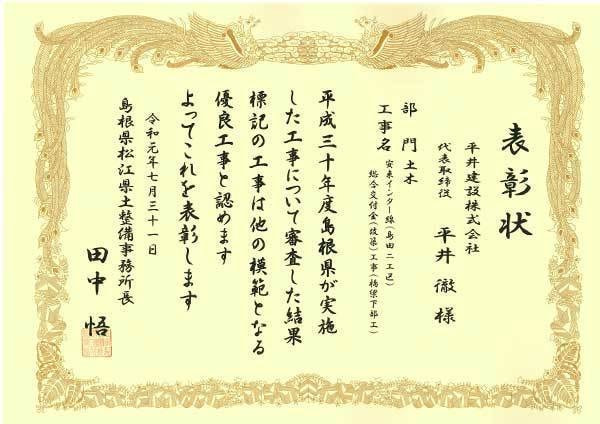 表彰状
平井建設株式会社
代表取締役 平井徹様
部門 土木
工事名 安来インター線(島田二工区)
総合交付金(改築)工事(橋梁下部工)
平成三十年度島根県が実施
した工事について審査した結果
標記の工事は他の模範となる
優良工事と認めます
よってこれを表彰します
令和元年七月三十一日
島根県松江県土整備事務所長
田中悟